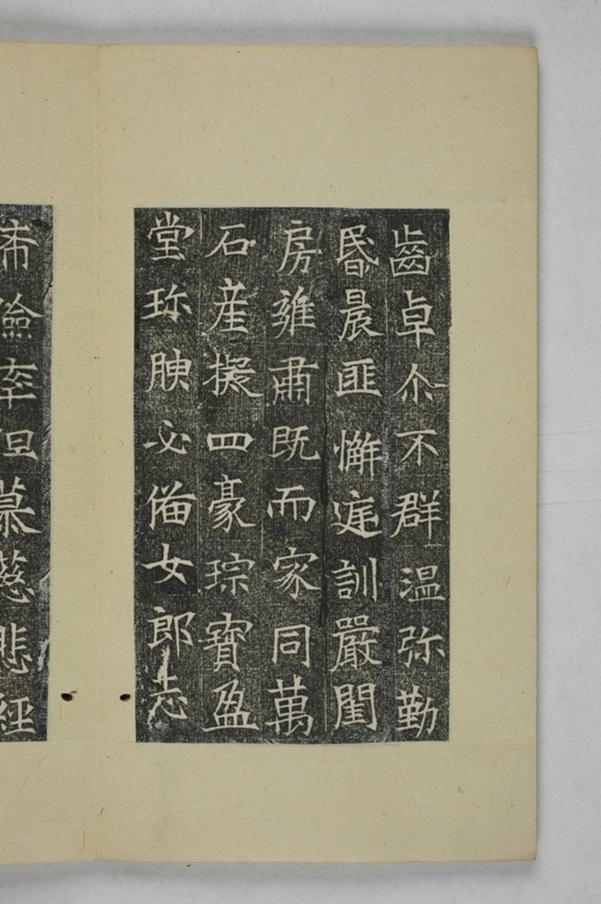 齒卓尒不群温弥勤
昬晨匪懈庭訓嚴閨
房雍肅既而家同萬
石産擬四豪琮寶盈
堂珎腴必俻女郎志
希儉率但慕慈悲經